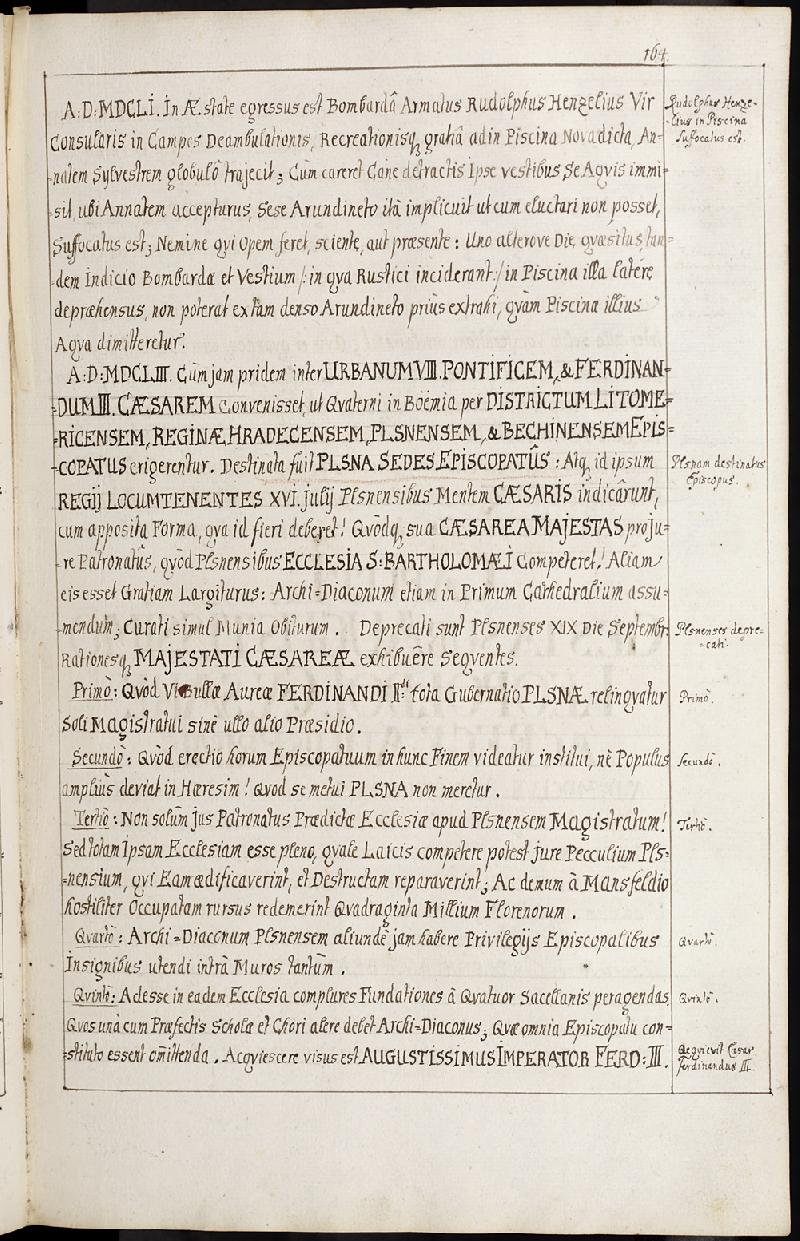 164.
A:D:MDCLI. In Æstate egressus est Bombardâ Armatus Rudolphus Henzelius Vir
Consularis in Campos Deambulationis, Recreationisq, gratiâ ad in Piscina Nova dicta, An-
-natem Sylvestrem globulô trajecit; Cùm careret Cane detractis Ipse vestibus Se Aqvis immi-
-sit, ubi Annatem accepturus, Sese Arundineto ità implicuit ut cum eluctari non posset,
Suffocatus est; Nemine qvi Opem ferret, sciente, aut præsente: Uno alterove Die, qvæsitus, tan-
-dem Indicio Bombardæ et Vestium /: in qva Rustici inciderant :/ in Piscina illa latere
depræhensus, non poterat ex tam denso Arundineto priùs extrahi, qvàm Piscina illius
Aqva dimitteretur.
Rudolphus Henze-
-lius in Piscina
Suffocatus est.
A:D:MDCLIII. Cùm jam pridem inter URBANUM VIII. PONTIFICEM, & FERDINAN-
-DUM III. CÆSAREM Convenisset, ut Qvaterni in Boëmia per DISTRICTUM LITOME-
-RICENSEM, REGINÆ HRADECENSEM, PLSNENSEM, & BECHINENSEM EPIS-
-COPATUS erigerentur. Destinata fuit PLSNA SEDES EPISCOPATÛS: Atq, id ipsum
REGIJ LOCUMTENENTES XVI. Julij Plsnensibus Mentem CÆSARIS indicârunt,
cum apposita Forma, qva id fieri deberet! Qvòdq, sua CÆSAREA MAJESTAS pro Ju-
-re Patronatûs, qvòd Plsnensibus ECCLESIA S: BARTHOLOMÆI Competeret! Aliam
eis esset Gratiam Largiturus: Archi-Diaconum etiam in Primum Cathedralium assu-
-mendum; Curati simul Munia Obiturum. Deprecati sunt Plsnenses XIX Die Septembr
Rationesq, MAJESTATI CÆSAREÆ exhibuêre Seqventes.
Plsnam destinatus
Episcopus.
Plsnenses depre-
-cati.
Primò: Qvòd Vi Bullæ Aureæ FERDINANDI II. tota Gubernatio PLSNÆ relinqvatur
Soli Magistratui sinè ullo alio Præsidio.
Primò.
Secundò: Qvòd erectio horum Episcopatuum in hunc Finem videatur institui, nè Populus
ampliùs deviat in Hæresim! Qvod se metui PLSNA non meretur.
Secundò.
Tertiò: Non solùm Jus Patronatus Prædictæ Ecclesiæ apud Plsnensem Magistratum!
Sed totam Ipsam Ecclesiam esse pleno, qvale Laicis competere potest jure Pecculium Pls-
-nensium, qvi Eam ædificaverint, et Destructam reparaverint; Ac demum à Mansfeldio
hostiliter Occupatam rursus redemerint Qvadraginta Millium Florenorum.
Tertiò.
Qvartò: Archi-Diaconum Plsnensem aliundè jam habere Privilegijs Episcopalibus
Insignibus utendi intrà Muros tantùm.
Qvartò.
Qvintò: Adesse in eadem Ecclesia complures Fundationes à Qvatuor Sacellanis peragendas,
Qvos unà cum Præfectis Scholæ et Chori alere debet Archi-Diaconus; Qvæ omnia Episcopatu con-
-stituto essent omittenda. Acqviescere visus est AUGUSTISSIMUS IMPERATOR FERD: III.
Qvintò.
Acqvievit Cæsar
Ferdinandus III.